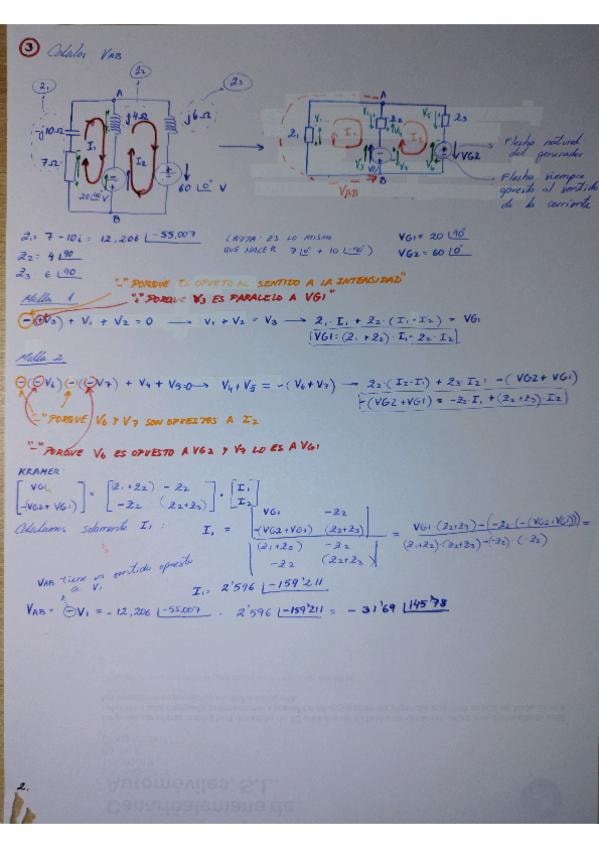 3 Calcular VAB
Z1 Z2 Z3
A A
j10Ω j4Ω j6Ω
I1 I2
7Ω
20|90 V 60|0° V
B B
Z1 Z2 Z3
V1 V5
I1 I2
V3 V4 V6
VG2
VAB
Flecha natural del generador
Flecha siempre opuesta al sentido de la corriente
Z1 = 7 - 10i = 12,206 |-55,007 (NOTA: ES LO MISMO VG1 = 20 |90°
Z2 = 4 |90 QUE HACER 7|0° + 10|-90°) VG2 = 60 |0°
Z3 = 6 |90
"-" PORQUE ES OPUESTO AL SENTIDO A LA INTENSIDAD"
Malla 1 "+" PORQUE V3 ES PARALELO A VG1"
-(+V3) + V1 + V2 = 0 → V1 + V2 = V3 → Z1·I1 + Z2·(I1-I2) = VG1
VG1 = (Z1+Z2)·I1 - Z2·I2
Malla 2
-(-V6) -(-V7) + V4 + V5=0 → V4+V5 = -(V6+V7) → Z2·(I2-I1) + Z3·I2 = -(VG2+VG1)
-(VG2+VG1) = -Z2·I1 + (Z2+Z3)·I2
"-" PORQUE V6 Y V7 SON OPUESTOS A I2
"-" PORQUE V6 ES OPUESTO A VG2 Y V7 LO ES A VG1
KRAMER:
[VG1] = [Z1+Z2 -Z2] · [I1]
[-(VG2+VG1)] [-Z2 (Z2+Z3)] [I2]
Calculamos solamente I1: I1 = |VG1 -Z2| |-(VG2+VG1) (Z2+Z3)| / |(Z1+Z2) -Z2| |-Z2 (Z2+Z3)| = VG1·(Z2+Z3)-(-Z2·(-(VG2+VG1))) / (Z1+Z2)·(Z2+Z3)-(-Z2)·(-Z2) =
VAB tiene un sentido opuesto a V1 I1 = 2'596 |-159'211
VAB = -V1 = -12,206 |-55,007 · 2'596 |-159'211 = -31'69 |145'78
2.
Automóviles, S.L.
Canarioalemana de